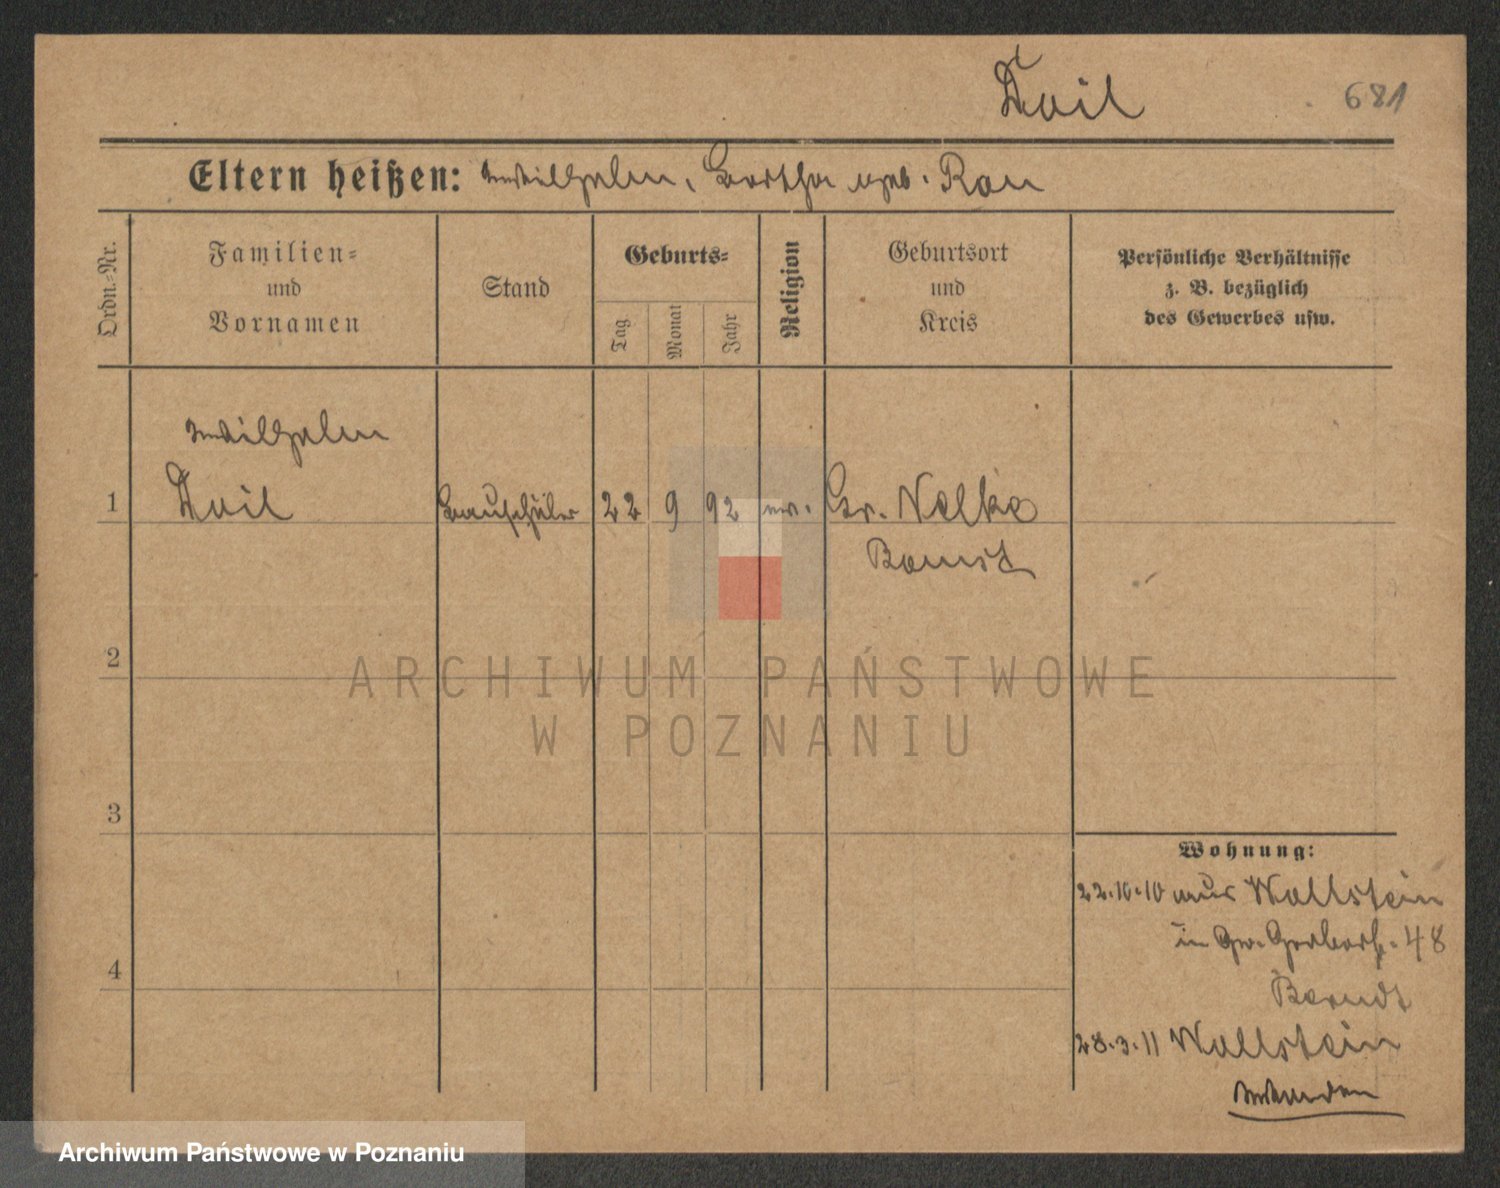 Kail
681
Eltern heißen: Wilhelm, Bertha geb. Rau
Ordn.-Nr.
Familien-
und
Vornamen
Stand
Geburts-
Tag
Monat
Jahr
Religion
Geburtsort
und
Kreis
Persönliche Verhältnisse
z. B. bezüglich
des Gewerbes usw.
Wilhelm
1 Kail Bauschüler 22 9 92 ev. Gr. Nelke
Bomst
2
3
4
Wohnung:
22.10.10 aus Wollstein
in Gr. Gerberst. 48
Berndt
28.3.11 Wollstein
ARCHIWUM PAŃSTWOWE
W POZNANIU
Archiwum Państwowe w Poznaniu